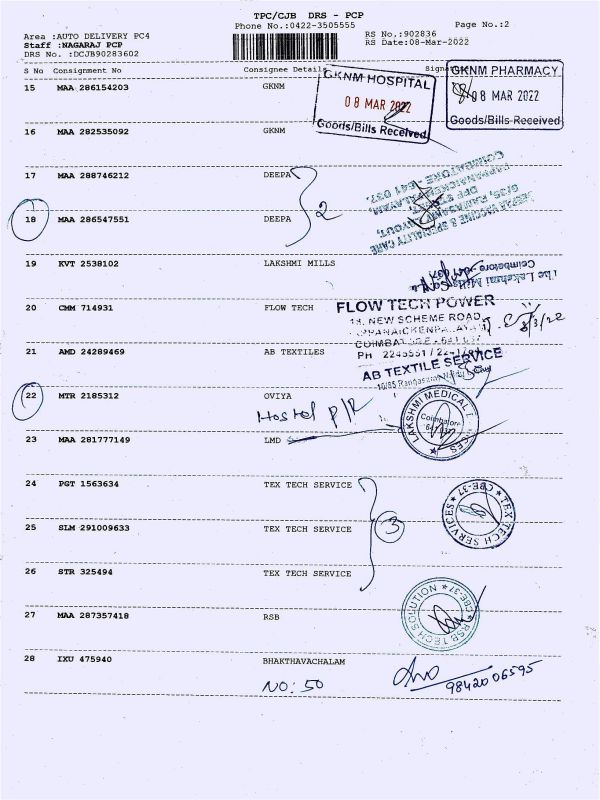 TPC/CJB DRS - PCP
Phone No.:0422-3505555
Page No.:2
Area :AUTO DELIVERY PC4
RS No.:902836
Staff :NAGARAJ PCP
RS Date:08-Mar-2022
DRS No. :DCJB90283602
S No Consignment No Consignee Details
GKNM HOSPITAL
08 MAR 2022
Goods/Bills Received
GKNM PHARMACY
08 MAR 2022
Goods/Bills Received
15 MAA 286154203 GKNM
16 MAA 282535092 GKNM
17 MAA 288746212 DEEPA
2
18 MAA 286547551 DEEPA
COIMBATORE - 641 037.
19 KVT 2538102 LAKSHMI MILLS
The Lakshmi Mills
Coimbatore
20 CMM 714931 FLOW TECH
FLOW TECH POWER
NEW SCHEME ROAD
8/3/22
PH 2245551
21 AMD 24289469 AB TEXTILES
AB TEXTILE SERVICE
22 MTR 2185312 OVIYA
Hostel P/R
LAKSHMI MEDICAL
Coimbatore
641 037
23 MAA 281777149 LMD
24 PGT 1563634 TEX TECH SERVICE
3
TEX TECH SERVICES
CBE-37
25 SLM 291009633 TEX TECH SERVICE
26 STR 325494 TEX TECH SERVICE
27 MAA 287357418 RSB
RSB TECH SOLUTION
CBE-37
28 IXU 475940 BHAKTHAVACHALAM
NO: 50
9842006595